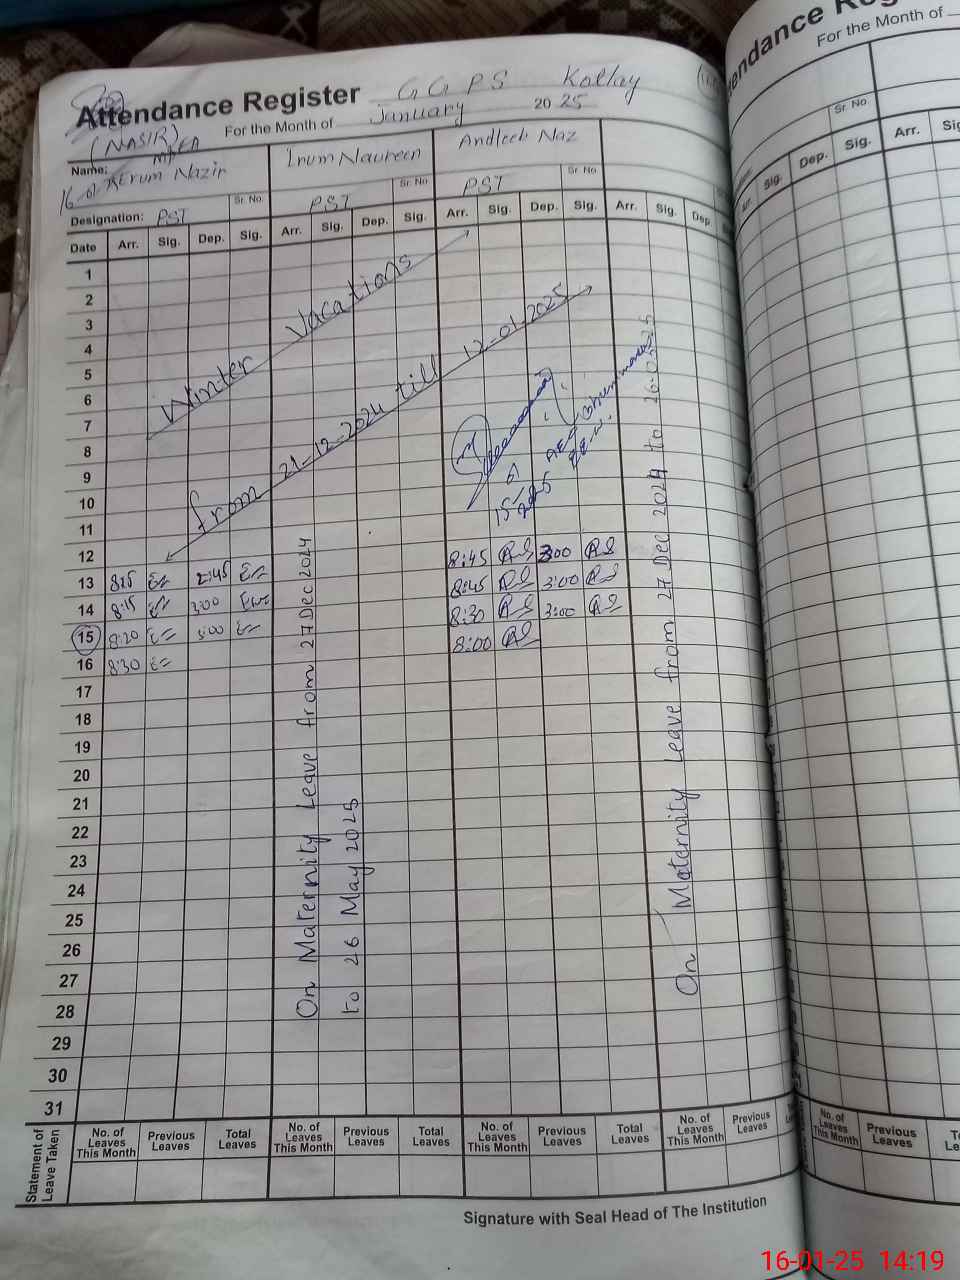 Attendance Register GGPS Kollay
For the Month of January 2025
(NASIR)
MAEA
Name: Aerum Nazir Irum Naureen Andleeb Naz
Sr. No. Sr. No. Sr. No.
Designation: PST PST PST
Date Arr. Sig. Dep. Sig. Arr. Sig. Dep. Sig. Arr. Sig. Dep. Sig. Arr. Sig. Dep.
1
2
3
4
5
6
7
8
9
10
11
12
13 8:15 2:45 8:45 3:00
14 8:15 3:00 8:45 3:00
15 8:20 3:00 8:30 3:00
16 8:30 8:00
17
18
19
20
21
22
23
24
25
26
27
28
29
30
31
Winter Vacations
from 21-12-2024 till 12-01-2025
15/
2025
On Maternity Leave from 27 Dec 2024
to 26 May 2025
On Maternity Leave from 27 Dec 2024 to 26
Statement of
Leave Taken
No. of
Leaves
This Month
Previous
Leaves
Total
Leaves
No. of
Leaves
This Month
Previous
Leaves
Total
Leaves
No. of
Leaves
This Month
Previous
Leaves
Total
Leaves
No. of
Leaves
This Month
Previous
Leaves
Signature with Seal Head of The Institution
For the Month of
Sr. No.
Sig. Dep. Sig. Arr.
No. of
Leaves
This Month
Previous
Leaves
16-01-25 14:19